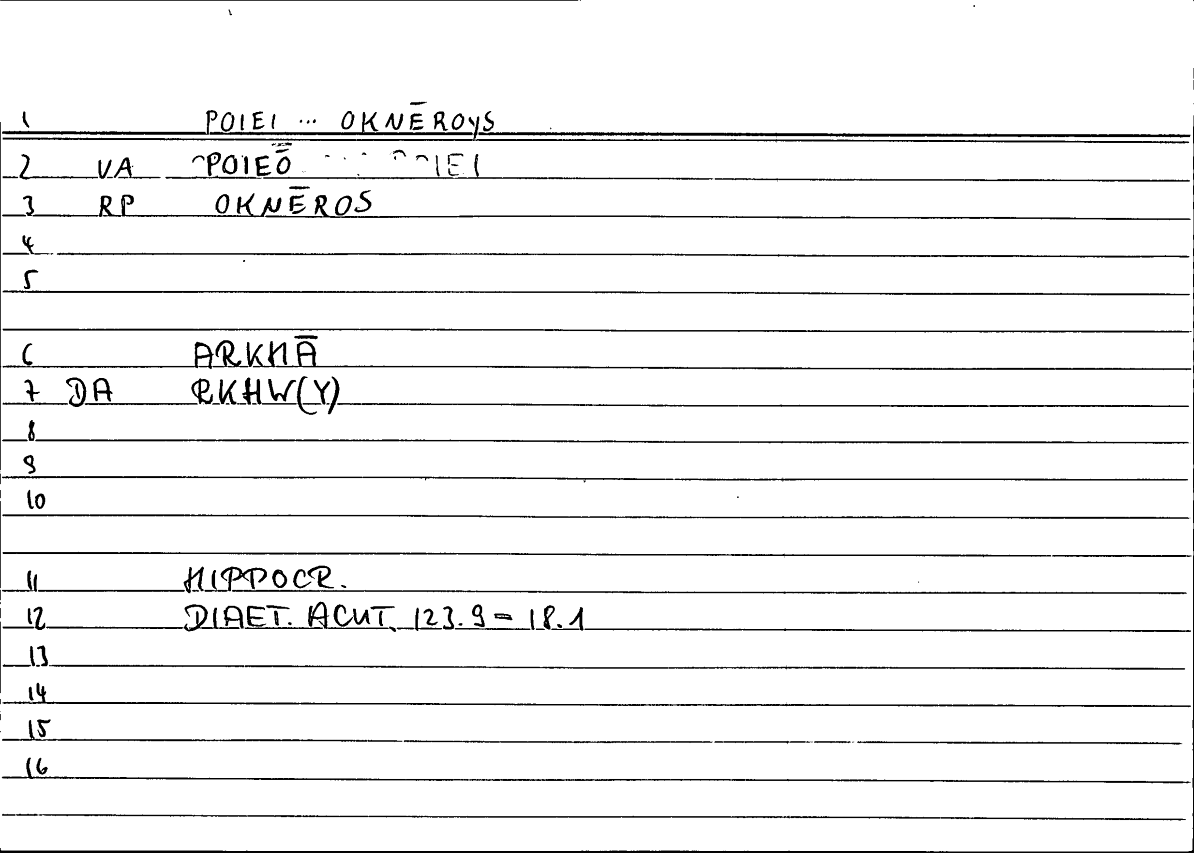 1 POIEI ... OKNĒROYS
2 VA POIEŌ
3 RP OKNĒROS
4
5
6 ARKHĀ
7 DA RKHW(Y)
8
9
10
11 HIPPOCR.
12 DIAET. ACUT. 123.9 = 18.1
13
14
15
16